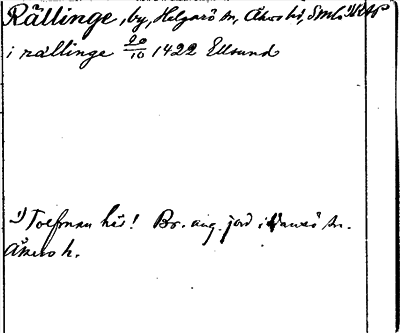 Rällinge, by, Helgarö sn, Åkers hd, Sml.
i rællinge 20/10 1422 Ellsund
1) Toefman hes! Br. ang. jord i sn.
Åkers h.